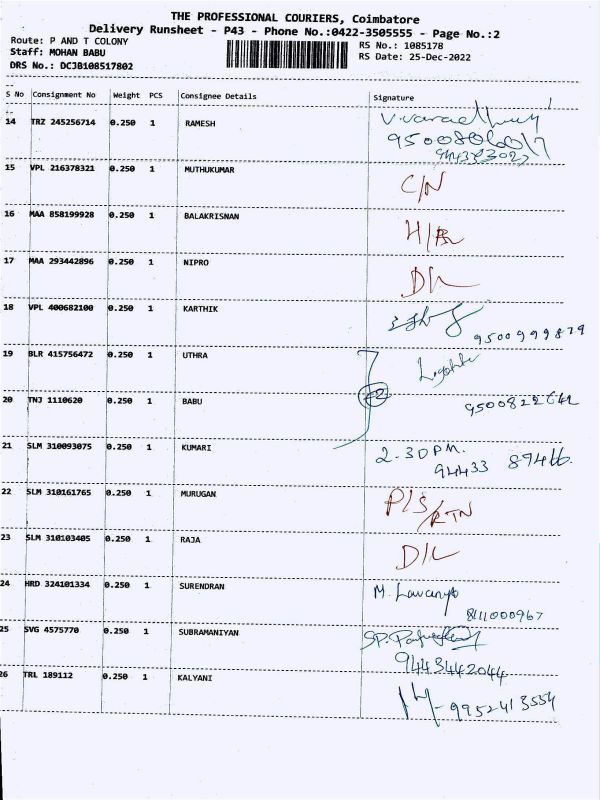 THE PROFESSIONAL COURIERS, Coimbatore
Delivery Runsheet - P43 - Phone No.:0422-3505555 - Page No.:2
Route: P AND T COLONY
Staff: MOHAN BABU
DRS No.: DCJB108517802
RS No.: 1085178
RS Date: 25-Dec-2022
S No Consignment No Weight PCS Consignee Details Signature
14 TRZ 245256714 0.250 1 RAMESH
15 VPL 216378321 0.250 1 MUTHUKUMAR C/N
16 MAA 858199928 0.250 1 BALAKRISNAN
17 MAA 293442896 0.250 1 NIPRO D/L
18 VPL 400682100 0.250 1 KARTHIK 9500999829
19 BLR 415756472 0.250 1 UTHRA
20 TNJ 1110620 0.250 1 BABU
21 SLM 310093075 0.250 1 KUMARI 2-30PM.
94433 89466.
22 SLM 310161765 0.250 1 MURUGAN P/S/RTN
23 SLM 310103405 0.250 1 RAJA D/L
24 HRD 324101334 0.250 1 SURENDRAN M. Lavanya
8111000967
25 SVG 4575770 0.250 1 SUBRAMANIYAN
9443442044
26 TRL 189112 0.250 1 KALYANI
9952413554